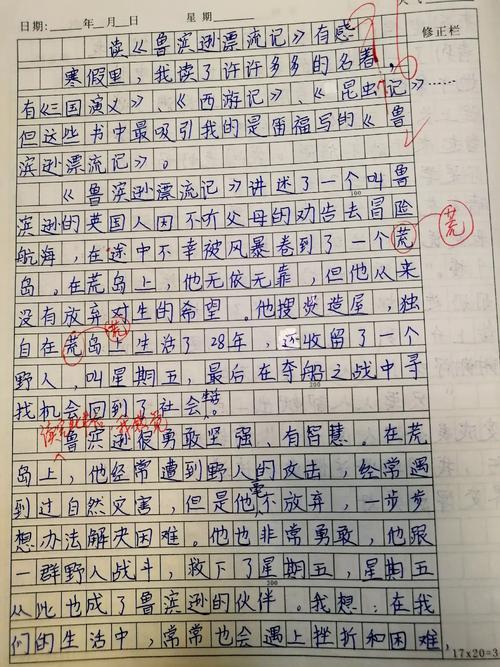 日期: 年 月 日 星期
修正栏
读《鲁滨逊漂流记》有感
寒假里,我读了许许多多的名著,
有《三国演义》、《西游记》、《昆虫记》……
但这些书中最吸引我的是雷福写的《鲁
滨逊漂流记》。
《鲁滨逊漂流记》讲述了一个叫鲁
100
滨逊的英国人因不听父母的劝告去冒险
航海,在途中不幸被风暴卷到了一个荒
荒
岛。在荒岛上,他无依无靠,但他从来
没有放弃对生的希望。他搜
造屋,独
荒
自在荒岛上生活了28年,还收留了一个
野人,叫星期五,最后在夺船之战中寻
200
找机会回到了社会。
鲁滨逊很勇敢坚强、有智慧。在荒
岛上,他经常遭到野人的攻击,经常遇
到过自然灾害,但是他毫不放弃,一步步
想办法解决困难。他也非常勇敢,他跟
一群野人战斗,救下了星期五,星期五
300
从此也成了鲁滨逊的伙伴。我想:在我
们的生活中,常常也会遇上挫折和困难,
17×20=3